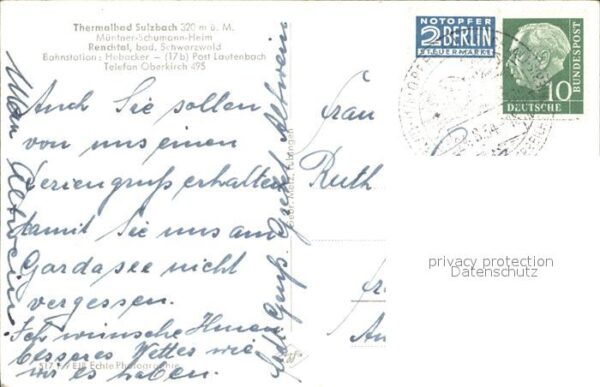 Thermalbad Sulzbach 320 m ü. M.
Müntner-Schumann-Heim
Renchtal, bad. Schwarzwald
Bahnstation: Hubacker – (17b) Post Lautenbach
Telefon Oberkirch 495
Auch Sie sollen
von uns einen
Feriengruß erhalten
damit Sie uns am
Gardasee nicht
vergessen.
Ich wünsche Ihnen
besseres Wetter wie
wir es haben.
Max Altwein.
Gruß
Altwein
517 EJB Echte Photographie
Frau
Ruth
NOTOPFER
2 BERLIN
STEUERMARKE
DEUTSCHE
BUNDESPOST
10
privacy protection
Datenschutz